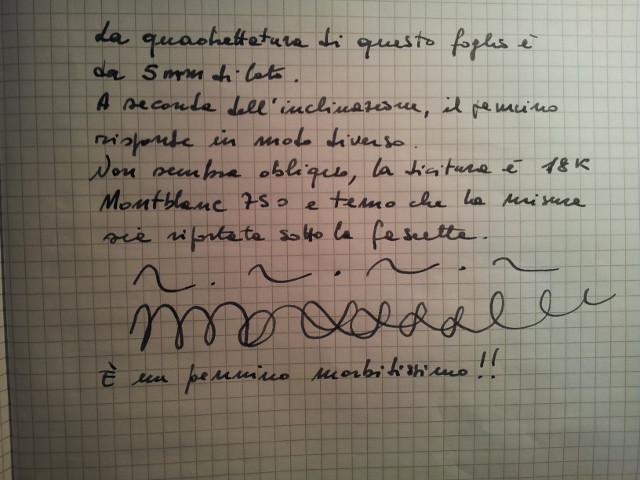 La quadrettatura di questo foglio è
da 5 mm di lato.
A seconda dell'inclinazione, il pennino
risponde in modo diverso.
Non sembra obliquo, la dicitura è 18K
Montblanc 750 e temo che la misura
sia riportata sotto la fascetta.
È un pennino morbidissimo!!